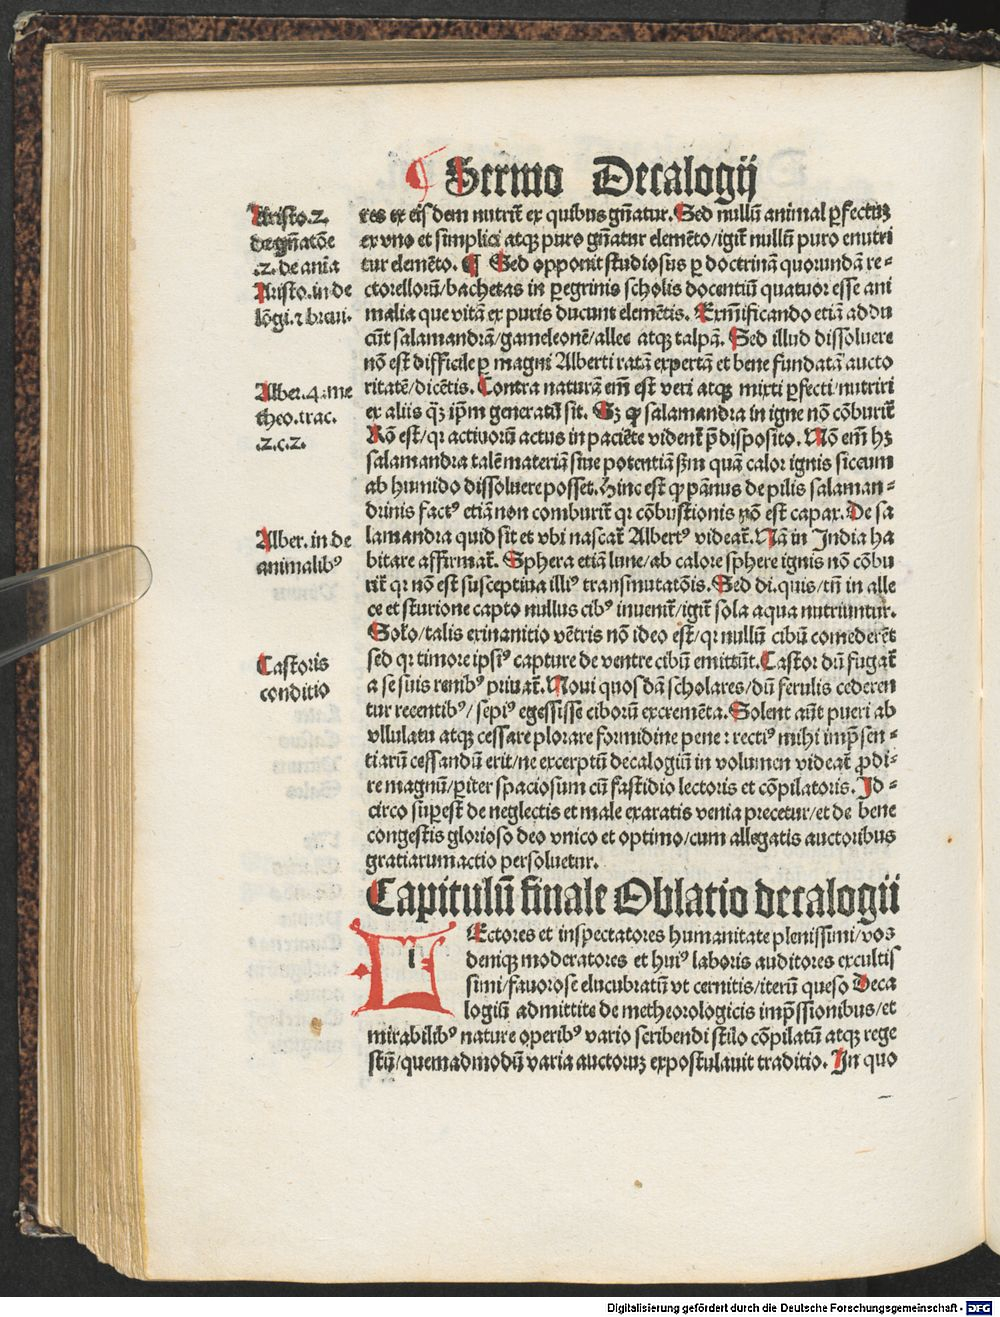 Sermo Decalogij
Aristo.2.
de gn̄atōe
.2. de aīa
Aristo. in de
lōgi. ⁊ breui.
Alber. 4. me
theo. trac.
.2. c. 2.
Alber. in de
animalibꝰ
Castoris
conditio
res ex eisdem nutrit̄ ex quibus gn̄atur. Sed nullū animal ꝑfectuꝫ
ex vno et simplici atqꝫ puro gn̄atur elemēto/igit̄ nullū puro enutri
tur elemēto. ¶ Sed opponit studiosus ꝑ doctrinā quorundā re⸗
ctorellorū/bachetas in ꝑegrinis scholis docentiū quatuor esse ani
malia que vitā ex puris ducunt elemētis. Exm̄ificando etiā addu
cūt salamandrā/gameleonē/allec atqꝫ talpā. Sed illud dissoluere
nō est difficile ꝑ magni Alberti ratā expertā et bene fundatā aucto
ritatē/dicētis. Contra naturā em̄ est veri atqꝫ mixti ꝑfecti/nutriri
ex aliis qꝫ ip̄m generatū sit. Sꝫ ꝙ salamandra in igne nō cōburit̄
Rō est/qr actiuorū actus in paciēte vident̄ p̄disposito. Nō em̄ hꝫ
salamandra talē materiā siue potentiā ẜm quā calor ignis siccum
ab humido dissoluere posset. Hinc est ꝙ pānus de pilis salaman⸗
drinis factꝰ etiā non comburit̄ qr cōbustionis nō est capax. De sa
lamandra quid sit et vbi nascat̄ Albertꝰ videat̄. Nā in India ha
bitare affirmat̄. Sphera etiā lune/ab calore sphere ignis nō cōbu
rit̄ qr nō est susceptiua illiꝰ transmutatōis. Sed di. quis/tn̄ in alle
ce et sturione capto nullus cibꝰ inuenit̄/igit̄ sola aqua nutriuntur.
Solo/talis exinanitio vētris nō ideo est/qr nullū cibū comederēt
sed qr timore ipsiꝰ capture de ventre cibū emittūt. Castor dū fugat̄
a se suis renibꝰ priuat̄. Noui quosdā scholares/dū ferulis cederen
tur recentibꝰ/sepiꝰ egessisse ciborū excremēta. Solent aūt pueri ab
vllulatu atqꝫ cessare plorare formidine pene: rectiꝰ mihi imp̄sen⸗
tiarū cessandū erit/ne excerptū decalogiū in volumen videat̄ ꝓdi⸗
re magnū/ꝑiter spaciosum cū fastidio lectoris et cōpilatoris. Id⸗
circo suꝑest de neglectis et male exaratis venia precetur/et de bene
congestis glorioso deo vnico et optimo/cum allegatis auctoribus
gratiarum actio persoluetur.
Capitulū finale Oblatio decalogii
LEctores et inspectatores humanitate plenissimi/vos
deniqꝫ moderatores et huiꝰ laboris auditores excultis
simi/fauorose elucubratū vt cernitis/iterū queso Deca
logiū admittite de metheorologicis imp̄ssionibus/et
mirabilibꝰ nature operibꝰ vario scribendi stilo cōpilatū atqꝫ rege
stū/quemadmodū varia auctoruꝫ expostulauit traditio. In quo
Digitalisierung gefördert durch die Deutsche Forschungsgemeinschaft - DFG